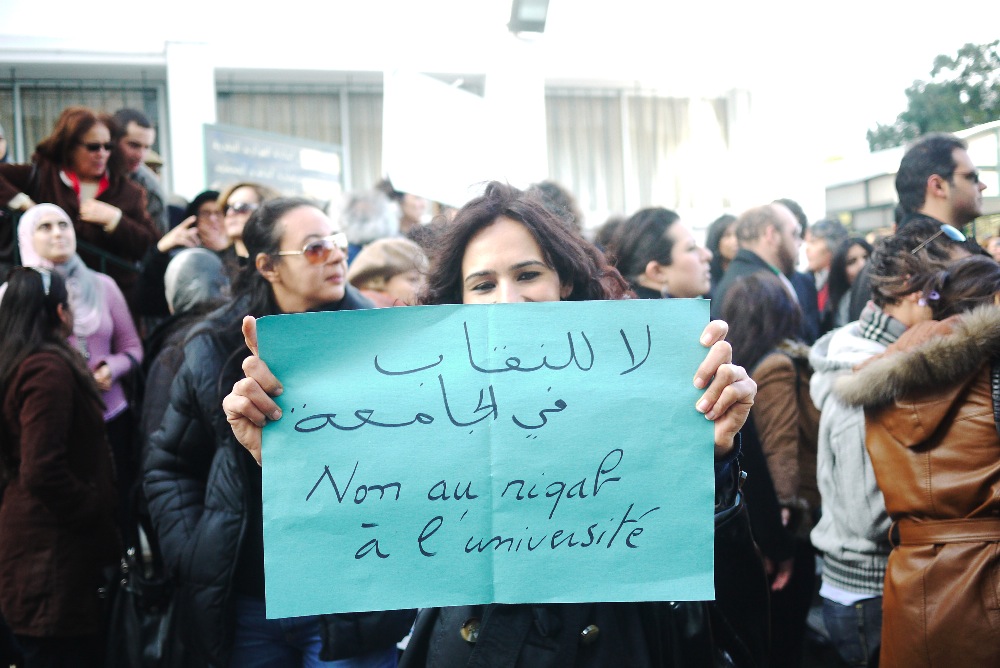 لا للنقاب
في الجامعة
Non au niqab
à l'université